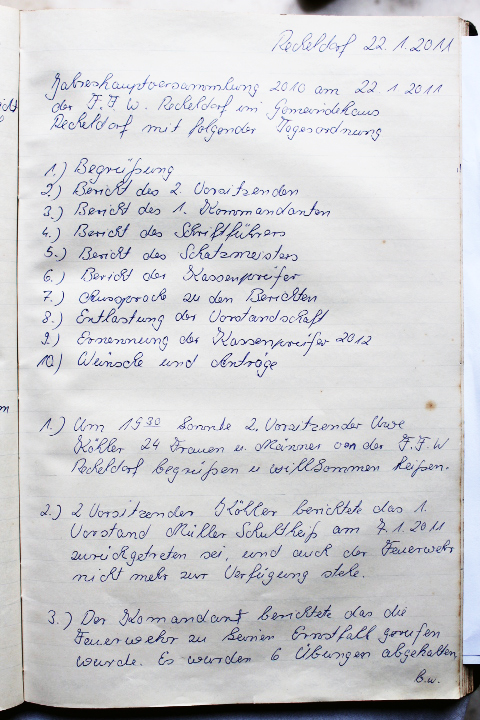 Reckeldorf 22.1.2011
Jahreshauptversammlung 2010 am 22.1.2011
der F.F.W. Reckeldorf im Gemeindehaus
Reckeldorf mit folgender Tagesordnung
1.) Begrüßung
2.) Bericht des 2. Vorsitzenden
3.) Bericht des 1. Kommandanten
4.) Bericht des Schriftführers
5.) Bericht des Schatzmeisters
6.) Bericht der Kassenpreifer
7.) Aussprache zu den Berichten
8.) Entlastung der Vorstandschaft
9.) Ernennung der Kassenpreifer 2012
10.) Weinsche und Anträge
1.) Um 19 30 konnte 2. Vorsitzender Uwe
Köhler 24 Frauen u. Männer von der F.F.W
Reckeldorf begrüßen u willkommen heißen.
2.) 2 Vorsitzender Köhler berichtete das 1.
Vorstand Müller Schultheiß am 7.1.2011
zurückgetreten sei, und auch der Feuerwehr
nicht mehr zur Verfügung stehe.
3.) Der Komandant berichtete das die
Feuerwehr zu keinen Ernstfall gerufen
wurde. Es wurden 6 Übungen abgehalten
b.w.